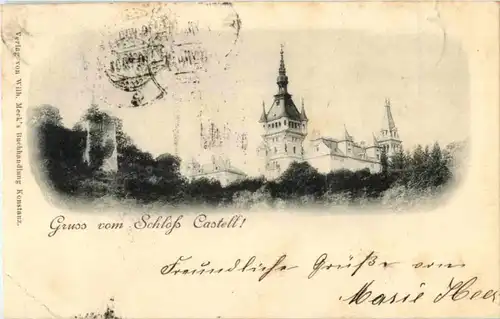 Verlag von Wilh. Meck's Buchhandlung Konstanz.
Gruss vom Schloß Castell!
Freundliche Grüße von
Marie